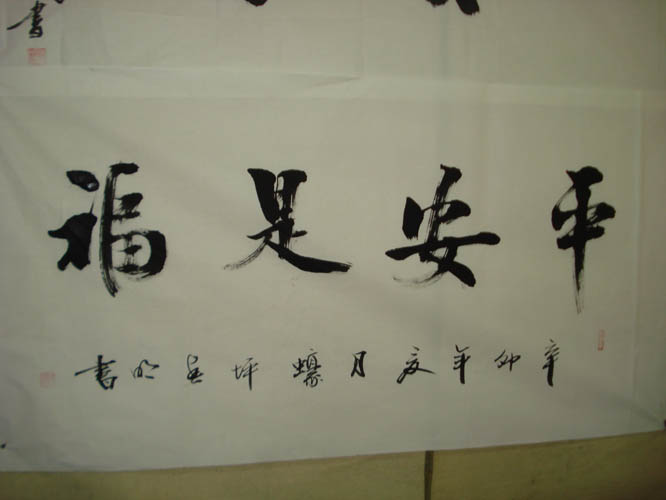 書
平安是福
辛卯年夏月蠔坪書